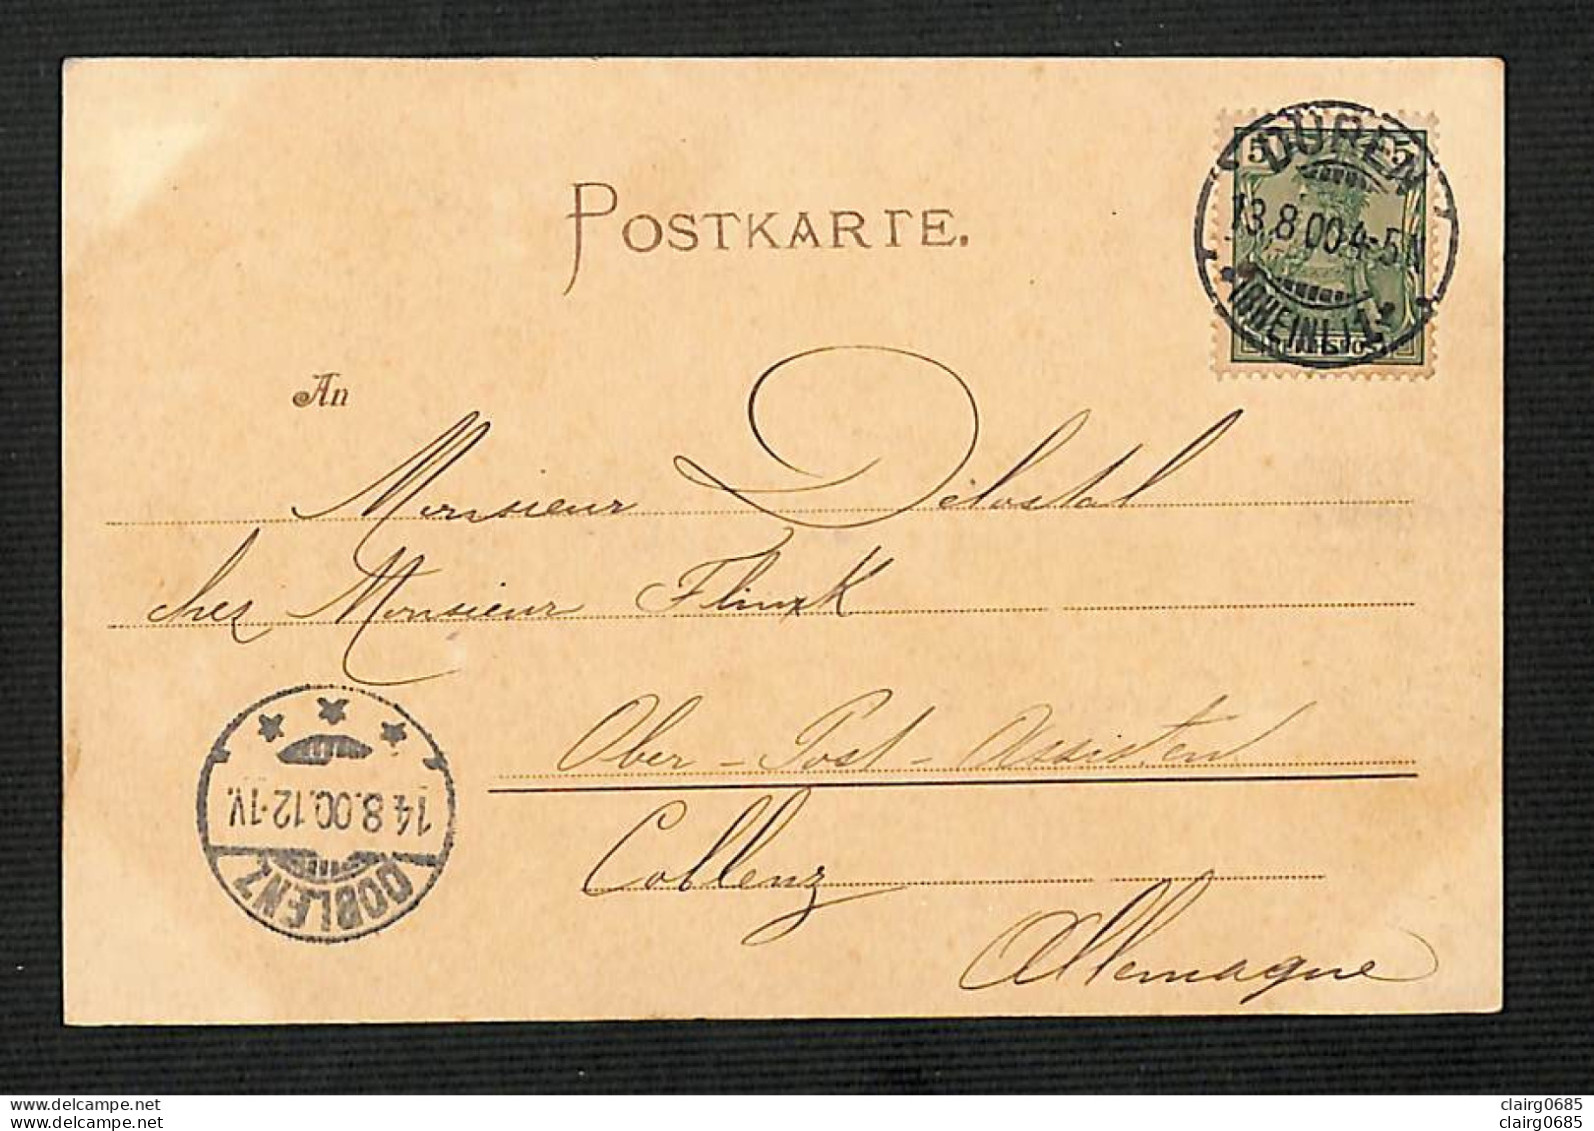 POSTKARTE.
5 5
DÜREN
13.8.00.4-5N
*(RHEINL.)1*
REICHSPOST
An
Monsieur Delostal
chez Monsieur Flinxk
Ober - Post - Assistent
Coblenz
Allemagne
COBLENZ
14.8.00.12-1V.
delcampe.net
clairg0685
clairg0685